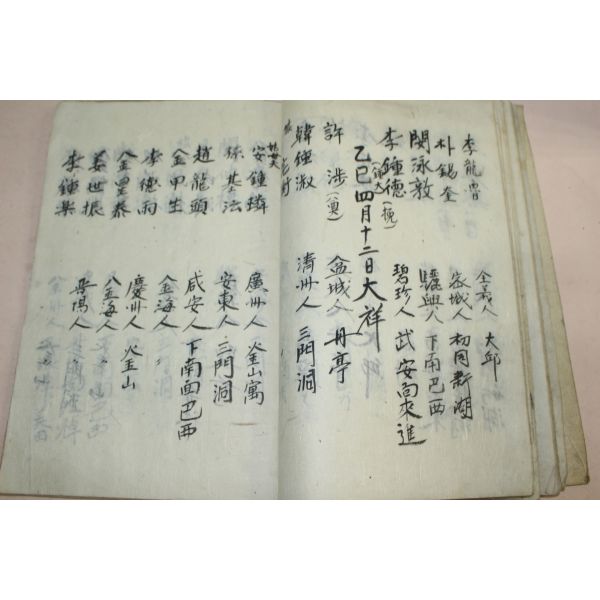 李龍曹 全義人 大邱
朴錫奎 密城人 初同新湖
閔泳敦 驪興人 下南巴西
李鍾德(挽) 碧珍人 武安面來進
乙巳四月十二日大祥
許涉(奠) 盆城人 丹亭
韓鍾淑 淸州人 三門洞
安鍾璘 廣州人 火金山寓
孫基法 安東人 三門洞
趙龍頭 咸安人 下南面巴西
金甲生 金海人
李德雨 慶州人 火金山
金星泰 金海人
姜世振 晉陽人
李鍾杲